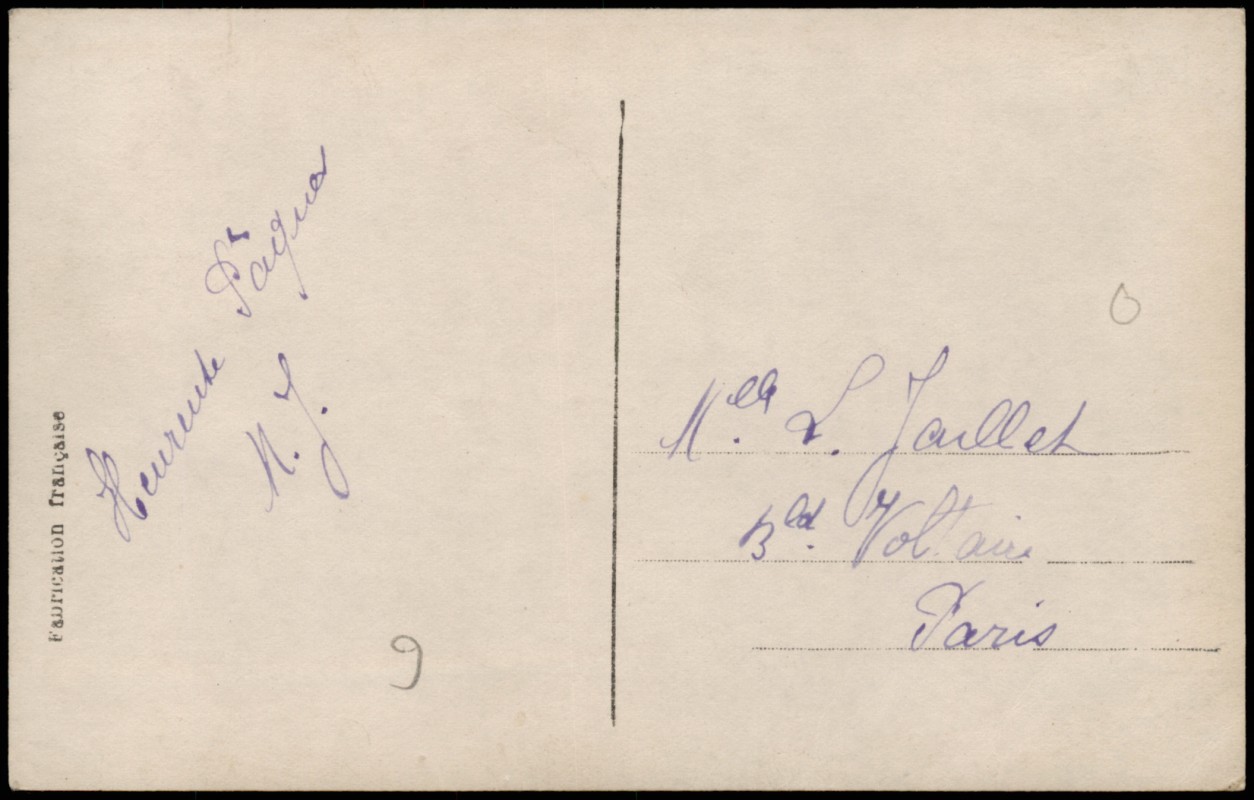 Fabrication française
Heureuse Pâques
M. J.
9
0
Mlle. L. Jaillet
Bld. Voltaire
Paris